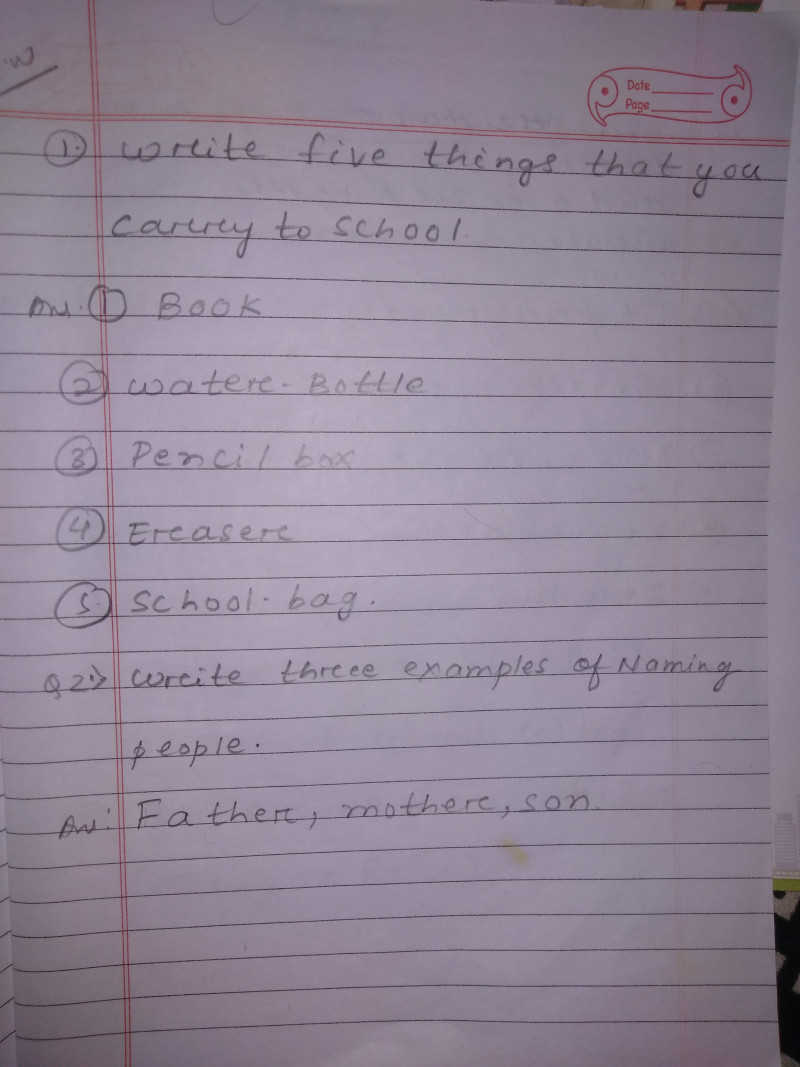 .W
Date
Page
① Write five things that you
carry to school.
Ans. ① Book
② Water - Bottle
③ Pencil box
④ Eraser
⑤ School - bag.
Q 2) Write three examples of Naming
people.
Ans: Father, mother, son.